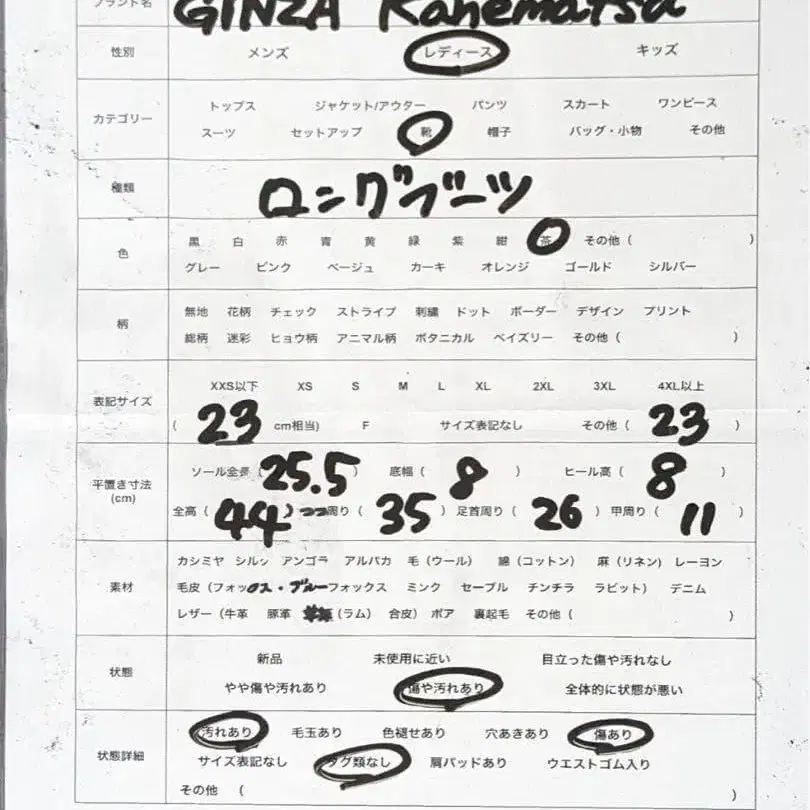 ブランド名 GINZA Kanematsu
性別 メンズ レディース キッズ
カテゴリー トップス ジャケット/アウター パンツ スカート ワンピース
スーツ セットアップ 靴 帽子 バッグ・小物 その他
種類 ロングブーツ
色 黒 白 赤 青 黄 緑 紫 紺 茶 その他 ( )
グレー ピンク ベージュ カーキ オレンジ ゴールド シルバー
柄 無地 花柄 チェック ストライプ 刺繍 ドット ボーダー デザイン プリント
総柄 迷彩 ヒョウ柄 アニマル柄 ボタニカル ペイズリー その他 ( )
表記サイズ XXS以下 XS S M L XL 2XL 3XL 4XL以上
( 23 cm相当) F サイズ表記なし その他 ( 23 )
平置き寸法 (cm) ソール全長 ( 25.5 ) 底幅 ( 8 ) ヒール高 ( 8 )
全高 ( 44 ) 周り ( 35 ) 足首周り ( 26 ) 甲周り ( 11 )
素材 カシミヤ シルク アンゴラ アルパカ 毛 (ウール) 綿 (コットン) 麻 (リネン) レーヨン
毛皮 (フォックス・ブルーフォックス ミンク セーブル チンチラ ラビット) デニム
レザー (牛革 豚革 (ラム) 合皮) ボア 裏起毛 その他 ( )
状態 新品 未使用に近い 目立った傷や汚れなし
やや傷や汚れあり 傷や汚れあり 全体的に状態が悪い
状態詳細 汚れあり 毛玉あり 色褪せあり 穴あきあり 傷あり
サイズ表記なし タグ類なし 肩パッドあり ウエストゴム入り
その他 ( )